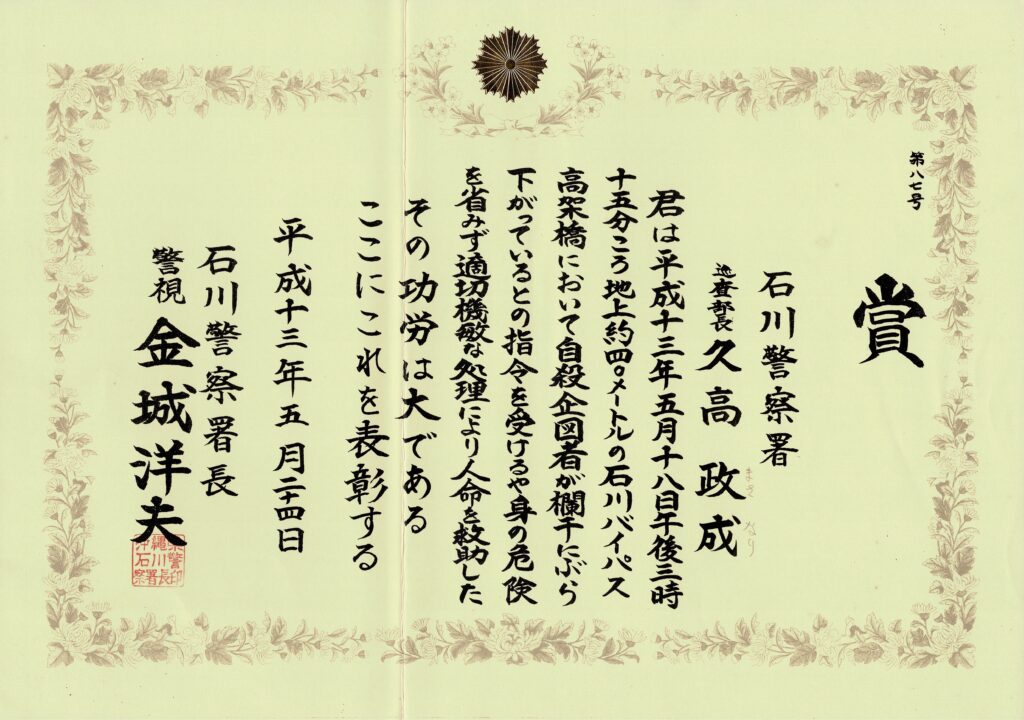 第八七号
賞
石川警察署
巡査部長 久高 政成
まさ なり
君は平成十三年五月十八日午後三時
十五分ころ地上約四〇メートルの石川バイパス
高架橋において自殺企図者が欄干にぶら
下がっているとの指令を受けるや身の危険
を省みず適切機敏な処理により人命を救助した
その功労は大である
ここにこれを表彰する
平成十三年五月二十四日
石川警察署長
警視 金城洋夫